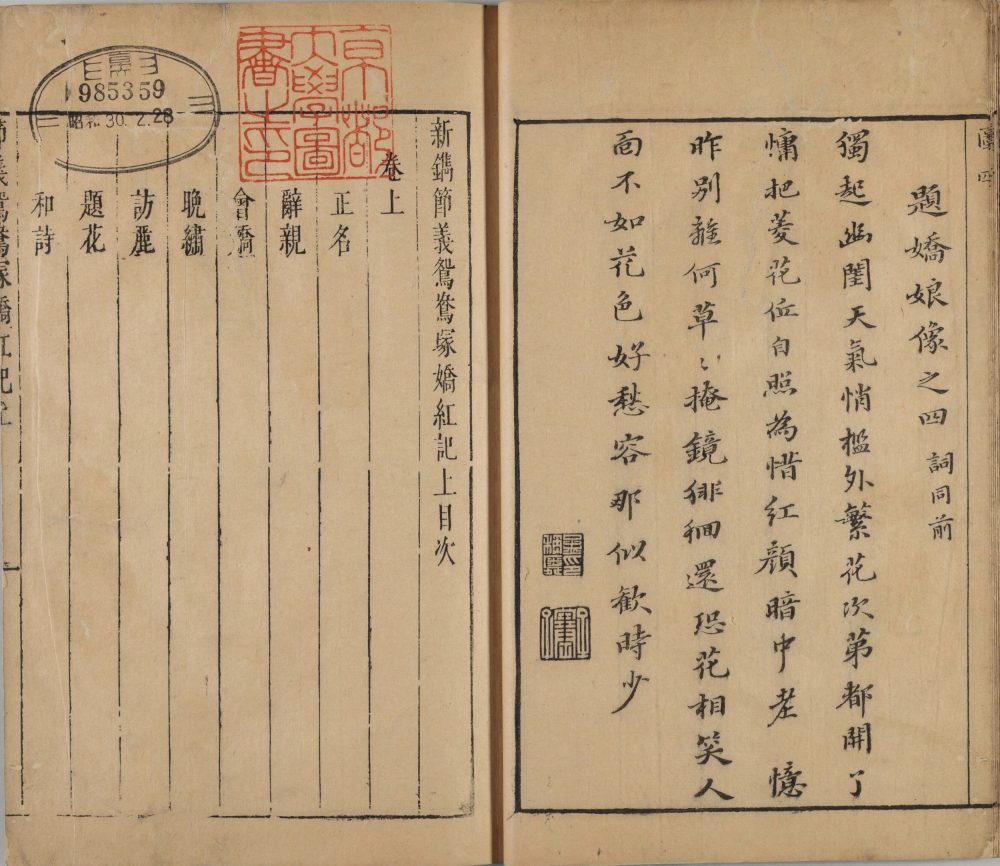 題嬌娘像之四 詞同前
獨起幽閨天氣悄檻外繁花次第都開了
慵把菱花伭自照為惜紅顏暗中老 憶
昨別離何草〻掩鏡徘徊還恐花相笑人
面不如花色好愁容那似歡時少
圖 四
新鐫節義鴛鴦塚嬌紅記上目次
卷上
正名
辭親
會嬌
晚繡
訪麗
題花
和詩
節義鴛鴦塚嬌紅記上
一
京都
大學圖
書之印
985359
昭和 30. 2. 28